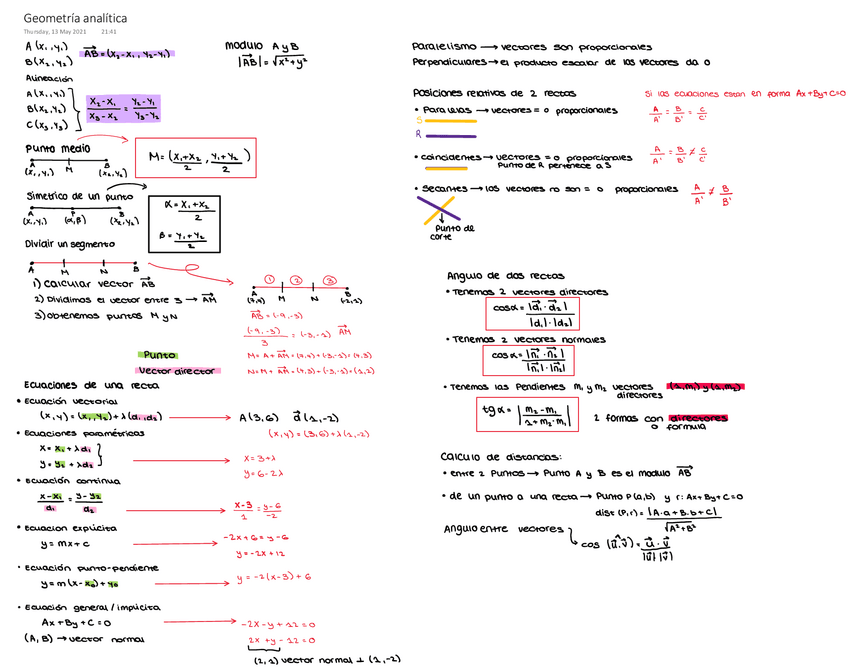 Geometría analítica
Thursday, 13 May 2021 21:41
A (x₁, y₁)
B (x₂, y₂)
AB = (x₂-x₁, y₂-y₁)
modulo A y B
|AB| = √x²+y²
Alineación
A (x₁, y₁)
B (x₂, y₂)
C (x₃, y₃)
x₂-x₁ / x₃-x₂ = y₂-y₁ / y₃-y₂
Punto medio
A M B
(x₁, y₁) (x₂, y₂)
M = (x₁+x₂ / 2, y₁+y₂ / 2)
Simetrico de un punto
A P B
(x₁, y₁) (α, β) (x₂, y₂)
α = x₁+x₂ / 2
β = y₁+y₂ / 2
Dividir un segmento
A M N B
1) calcular vector AB
2) Dividimos el vector entre 3 → AM
3) obtenemos puntos M y N
① ② ③
A M N B
(7,4) (-2,1)
AB = (-9,-3)
(-9,-3) / 3 = (-3,-1) AM
M = A + AM = (7,4) + (-3,-1) = (4,3)
N = M + AM = (4,3) + (-3,-1) = (1,2)
Punto
Vector director
Ecuaciones de una recta
• Ecuación vectorial
(x,y) = (x₁, y₂) + λ (d₁, d₂)
A (3,6) d (1,-2)
(x,y) = (3,6) + λ (1,-2)
• Ecuaciones paramétricas
x = x₁ + λd₁
y = y₂ + λd₂
x = 3+λ
y = 6-2λ
• Ecuación continua
x-x₁ / d₁ = y-y₂ / d₂
x-3 / 1 = y-6 / -2
• Ecuacion explícita
y = mx + c
-2x+6 = y-6
y = -2x+12
• Ecuación punto-pendiente
y = m (x-x₀) + y₀
y = -2 (x-3) + 6
• Ecuación general / implícita
Ax + By + C = 0
(A, B) → vector normal
-2x-y+12 = 0
2x+y-12 = 0
(2,1) vector normal ⊥ (1,-2)
Paralelismo → vectores son proporcionales
Perpendiculares → el producto escalar de los vectores da 0
Posiciones relativas de 2 rectas
Si las ecuaciones estan en forma Ax+By+C=0
• Paralelas → vectores = o proporcionales
S
R
A/A' = B/B' = C/C'
• coincidentes → vectores = o proporcionales
Punto de R pertenece a S
A/A' = B/B' ≠ C/C'
• Secantes → los vectores no son = o proporcionales
A/A' ≠ B/B'
Punto de
corte
Angulo de dos rectas
• Tenemos 2 vectores directores
cosα = |d₁ · d₂| / |d₁| · |d₂|
• Tenemos 2 vectores normales
cosα = |n₁ · n₂| / |n₁| · |n₂|
• Tenemos las Pendientes m₁ y m₂ vectores directores (1,m₁) y (1,m₂)
tgα = | m₂-m₁ / 1+m₂·m₁ |
2 formas con directores
o formula
Calculo de distancias:
• entre 2 Puntos → Punto A y B es el modulo AB
• de un punto a una recta → Punto P(a,b) y r: Ax+By+C=0
dist (P,r) = |A·a+B·b+C| / √A²+B²
Angulo entre vectores
cos (u,v) = u · v / |u| |v|